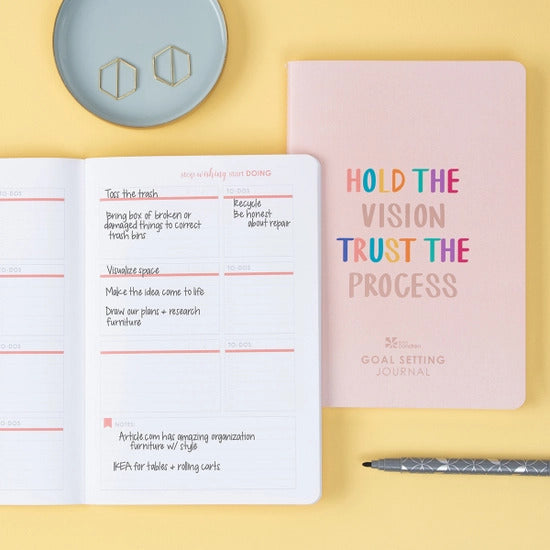 stop wishing start DOING
TO-DOS
Toss the trash
TO-DOS
Bring box of broken or
damaged things to correct
trash bins
Recycle
Be honest
about repair
TO-DOS
Visualize space
TO-DOS
Make the idea come to life
Draw our plans + research
furniture
TO-DOS
TO-DOS
NOTES:
Article.com has amazing organization
furniture w/ style
IKEA for tables + rolling carts
TO-DOS
HOLD THE
VISION
TRUST THE
PROCESS
GOAL SETTING
JOURNAL